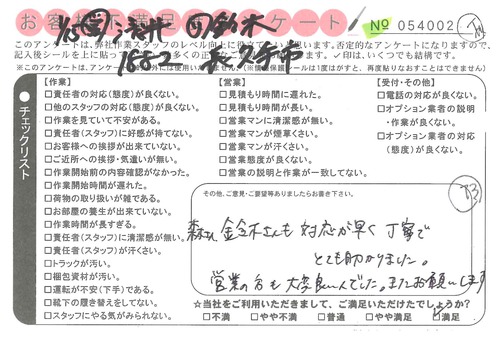 お客様不満足 アンケート
No 054002
このアンケートは、弊社作業スタッフのレベル向上に
思います。否定的なアンケートになりますので、
記入後シールを上に貼って
※このアンケートは、
【作業】
□責任者の対応(態度)が良くない。
□他のスタッフの対応(態度)が良くない。
□作業を見ていて不安がある。
□責任者(スタッフ)に好感が持てない。
□お客様への挨拶が出来ていない。
□ご近所への挨拶・気遣いが無い。
□作業開始前の内容確認がなかった。
□作業開始時間が遅れた。
□荷物の取り扱いが雑である。
□お部屋の養生が出来ていない。
□作業時間が長すぎる。
□責任者(スタッフ)に清潔感が無い。
□責任者(スタッフ)が汗くさい。
□トラックが汚い。
□梱包資材が汚い。
□運転が不安(下手)である。
□靴下の履き替えをしてない。
□スタッフにやる気がみられない。
チェックリスト
【営業】
□見積もり時間に遅れた。
□見積もり時間が長い。
□営業マンに清潔感が無い。
□営業マンが煙草くさい。
□営業マンが汗くさい。
□営業態度が良くない。
□営業の説明と作業が一致してない。
【受付・その他】
□電話の対応が良くない。
□オプション業者の説明
・作業が良くない。
□オプション業者の対応
(態度)が良くない。
その他、ご意見・ご要望等ありましたらお書き下さい。
対応が早く丁寧で
とても助かりました。
営業の方も
またお願いします
☆当社をご利用いただきまして、ご満足いただけたでしょうか?
□不満 □やや不満 □普通 □やや満足 □満足